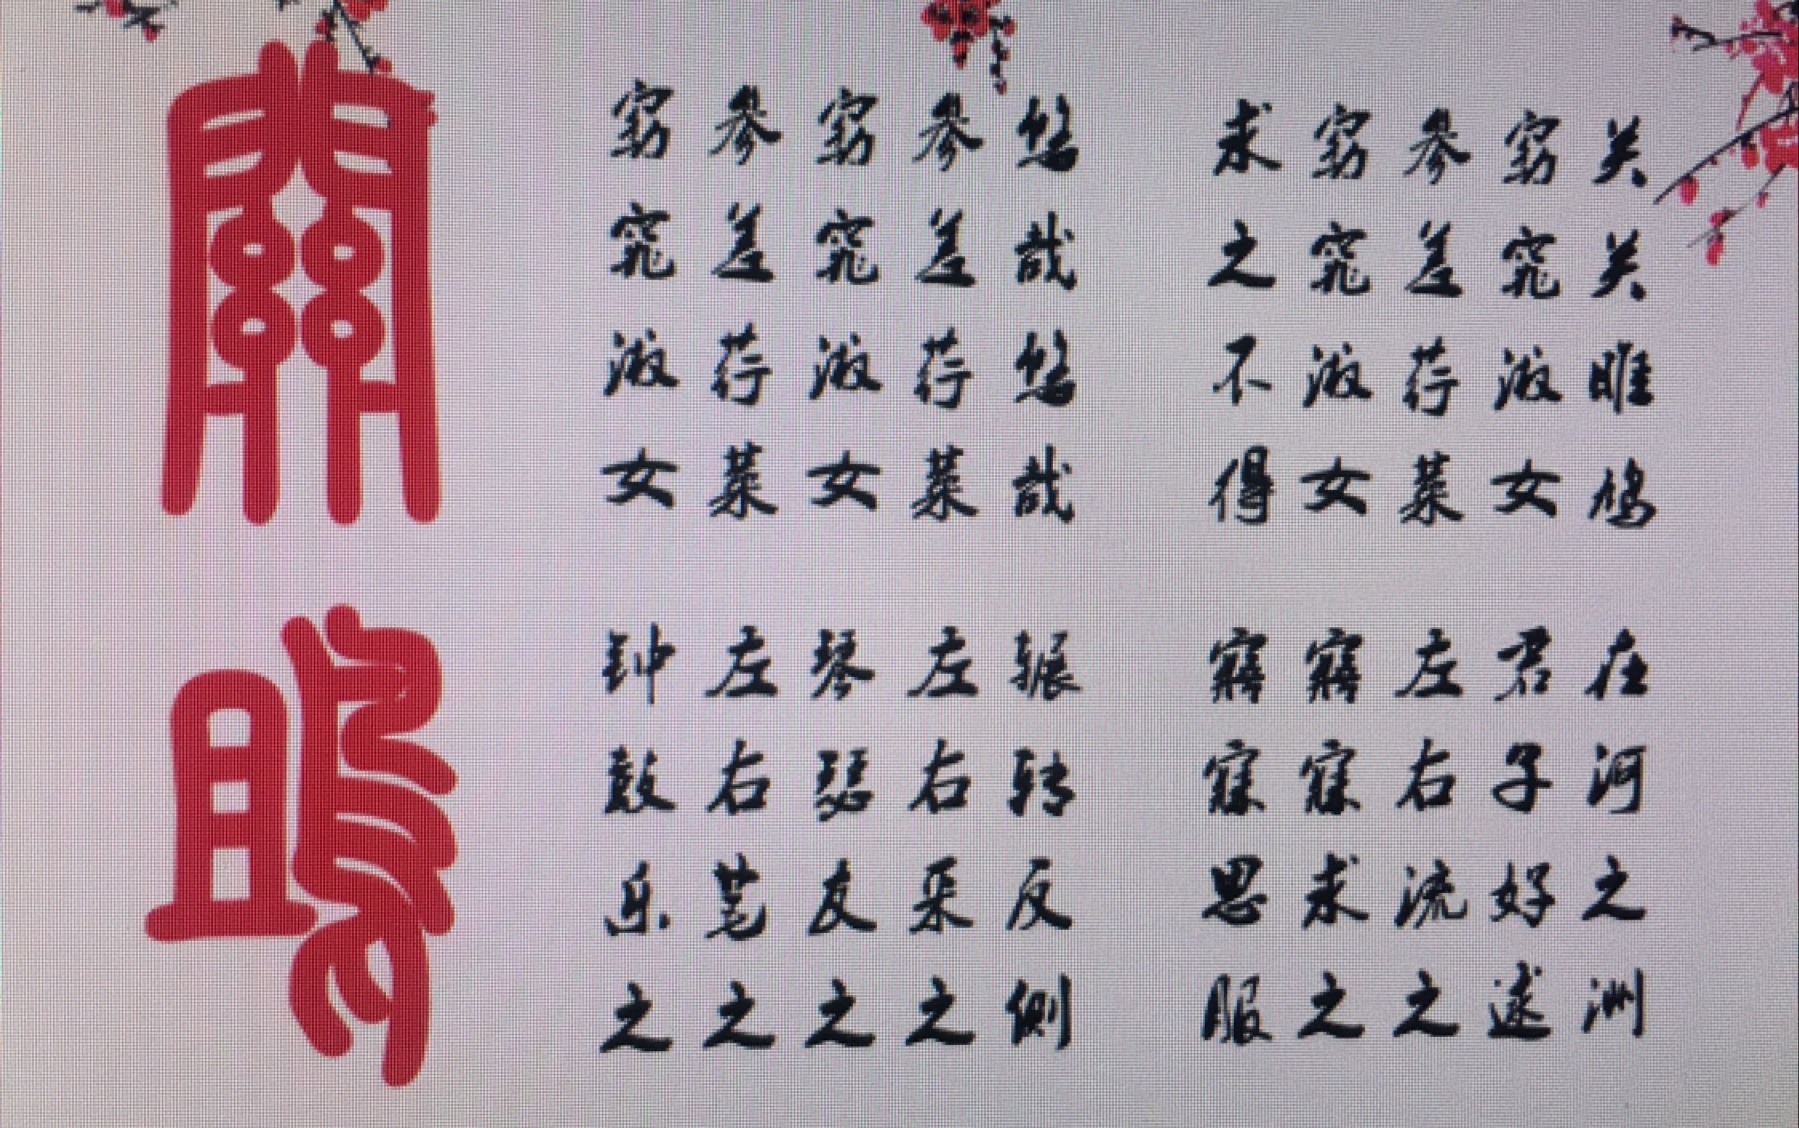 关关雎鸠 在河之洲
窈窕淑女 君子好逑
参差荇菜 左右流之
窈窕淑女 寤寐求之
求之不得 寤寐思服
悠哉悠哉 辗转反侧
参差荇菜 左右采之
窈窕淑女 琴瑟友之
参差荇菜 左右芼之
窈窕淑女 钟鼓乐之
關鴡